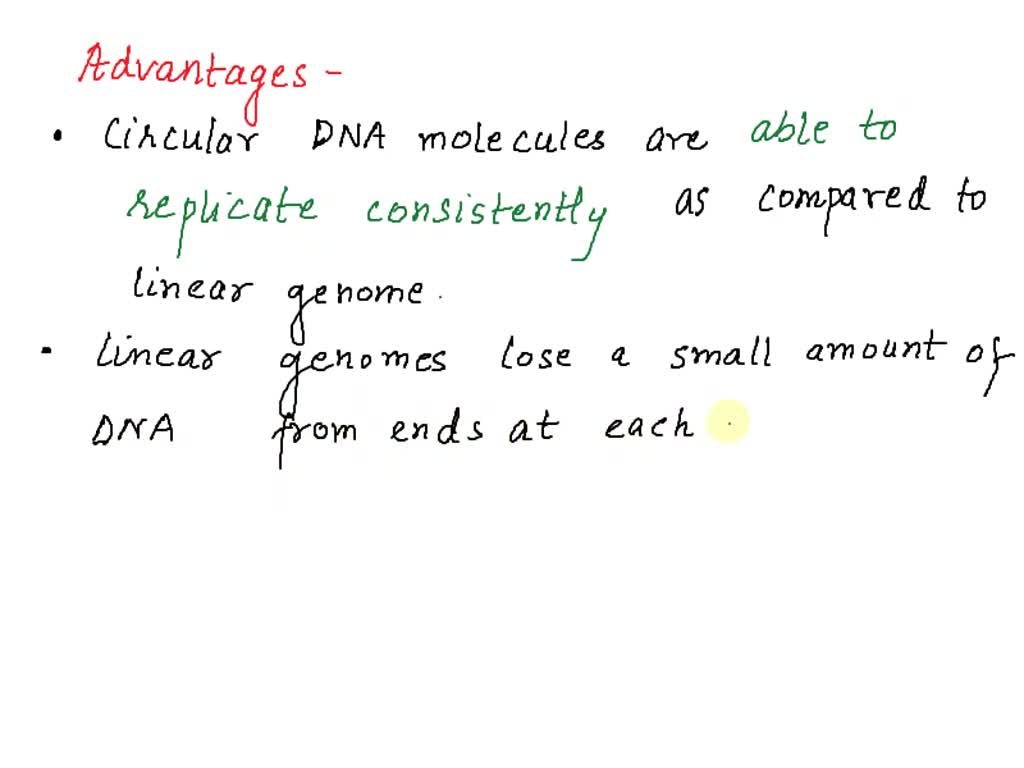 Advantages -
• Circular DNA molecules are able to
replicate consistently as compared to
linear genome.
• Linear genomes lose a small amount of
DNA from ends at each